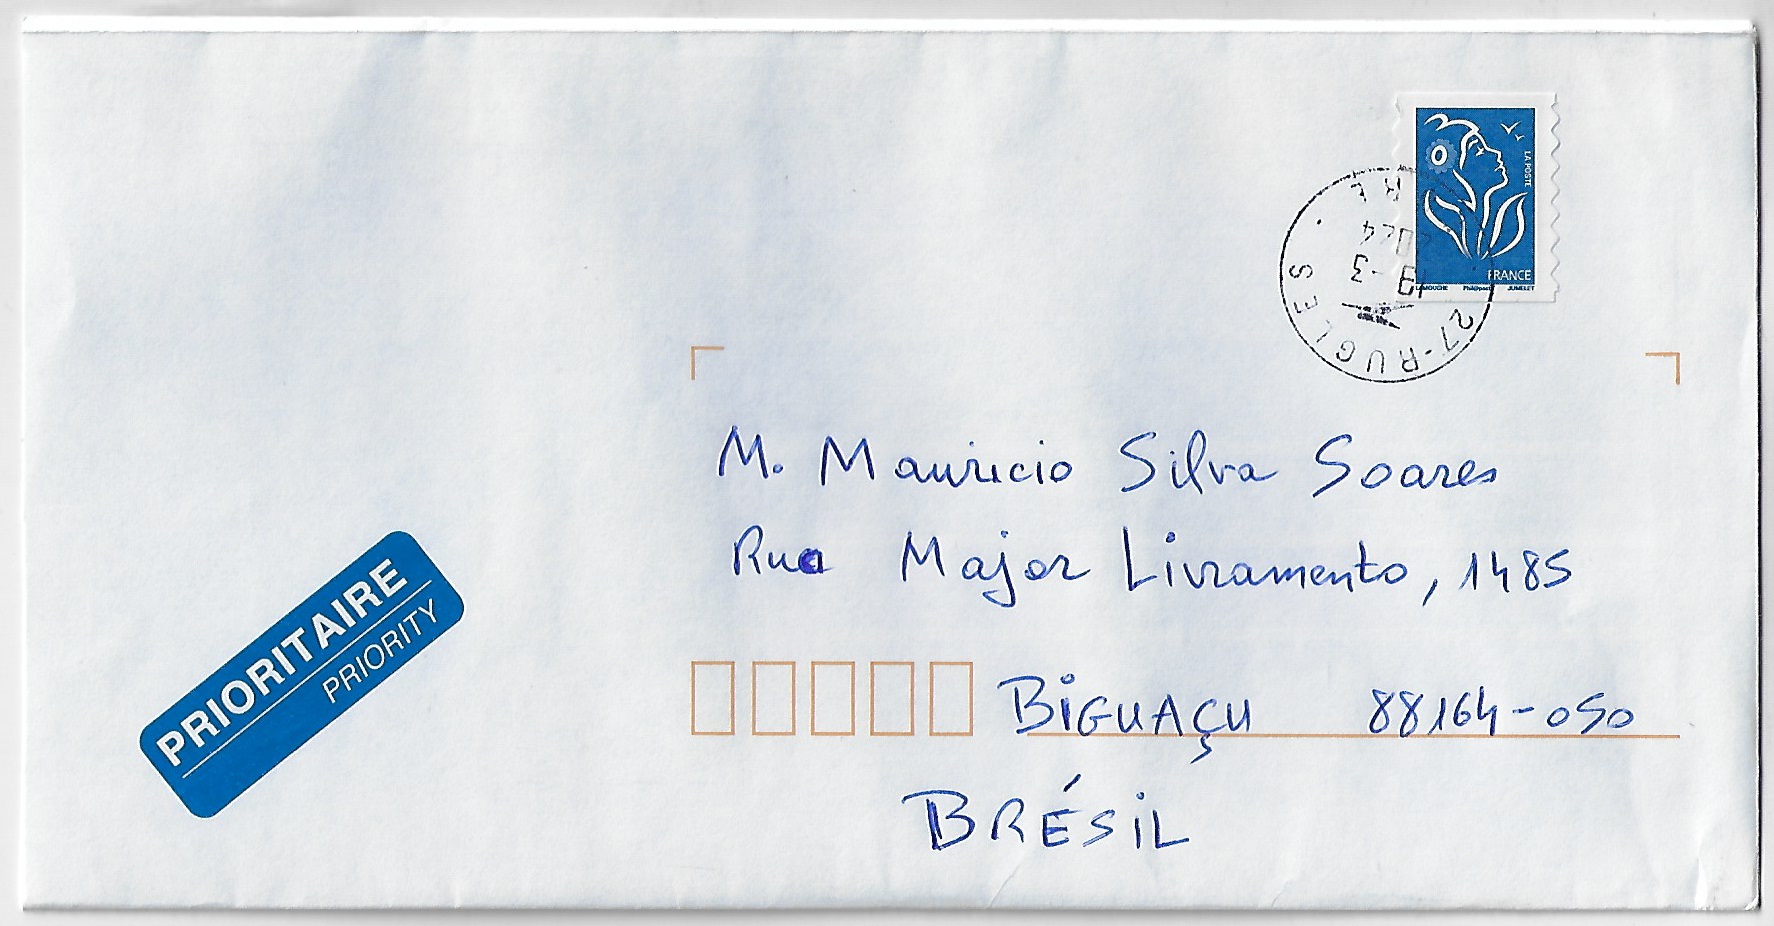 LA POSTE
FRANCE
LAMOUCHE Phil@poste JUMELET
27-RUGLES
19-3
M. Mauricio Silva Soares
Rua Major Livramento, 1485
PRIORITAIRE
PRIORITY
BiGUAÇU 88164-050
BRÉSiL